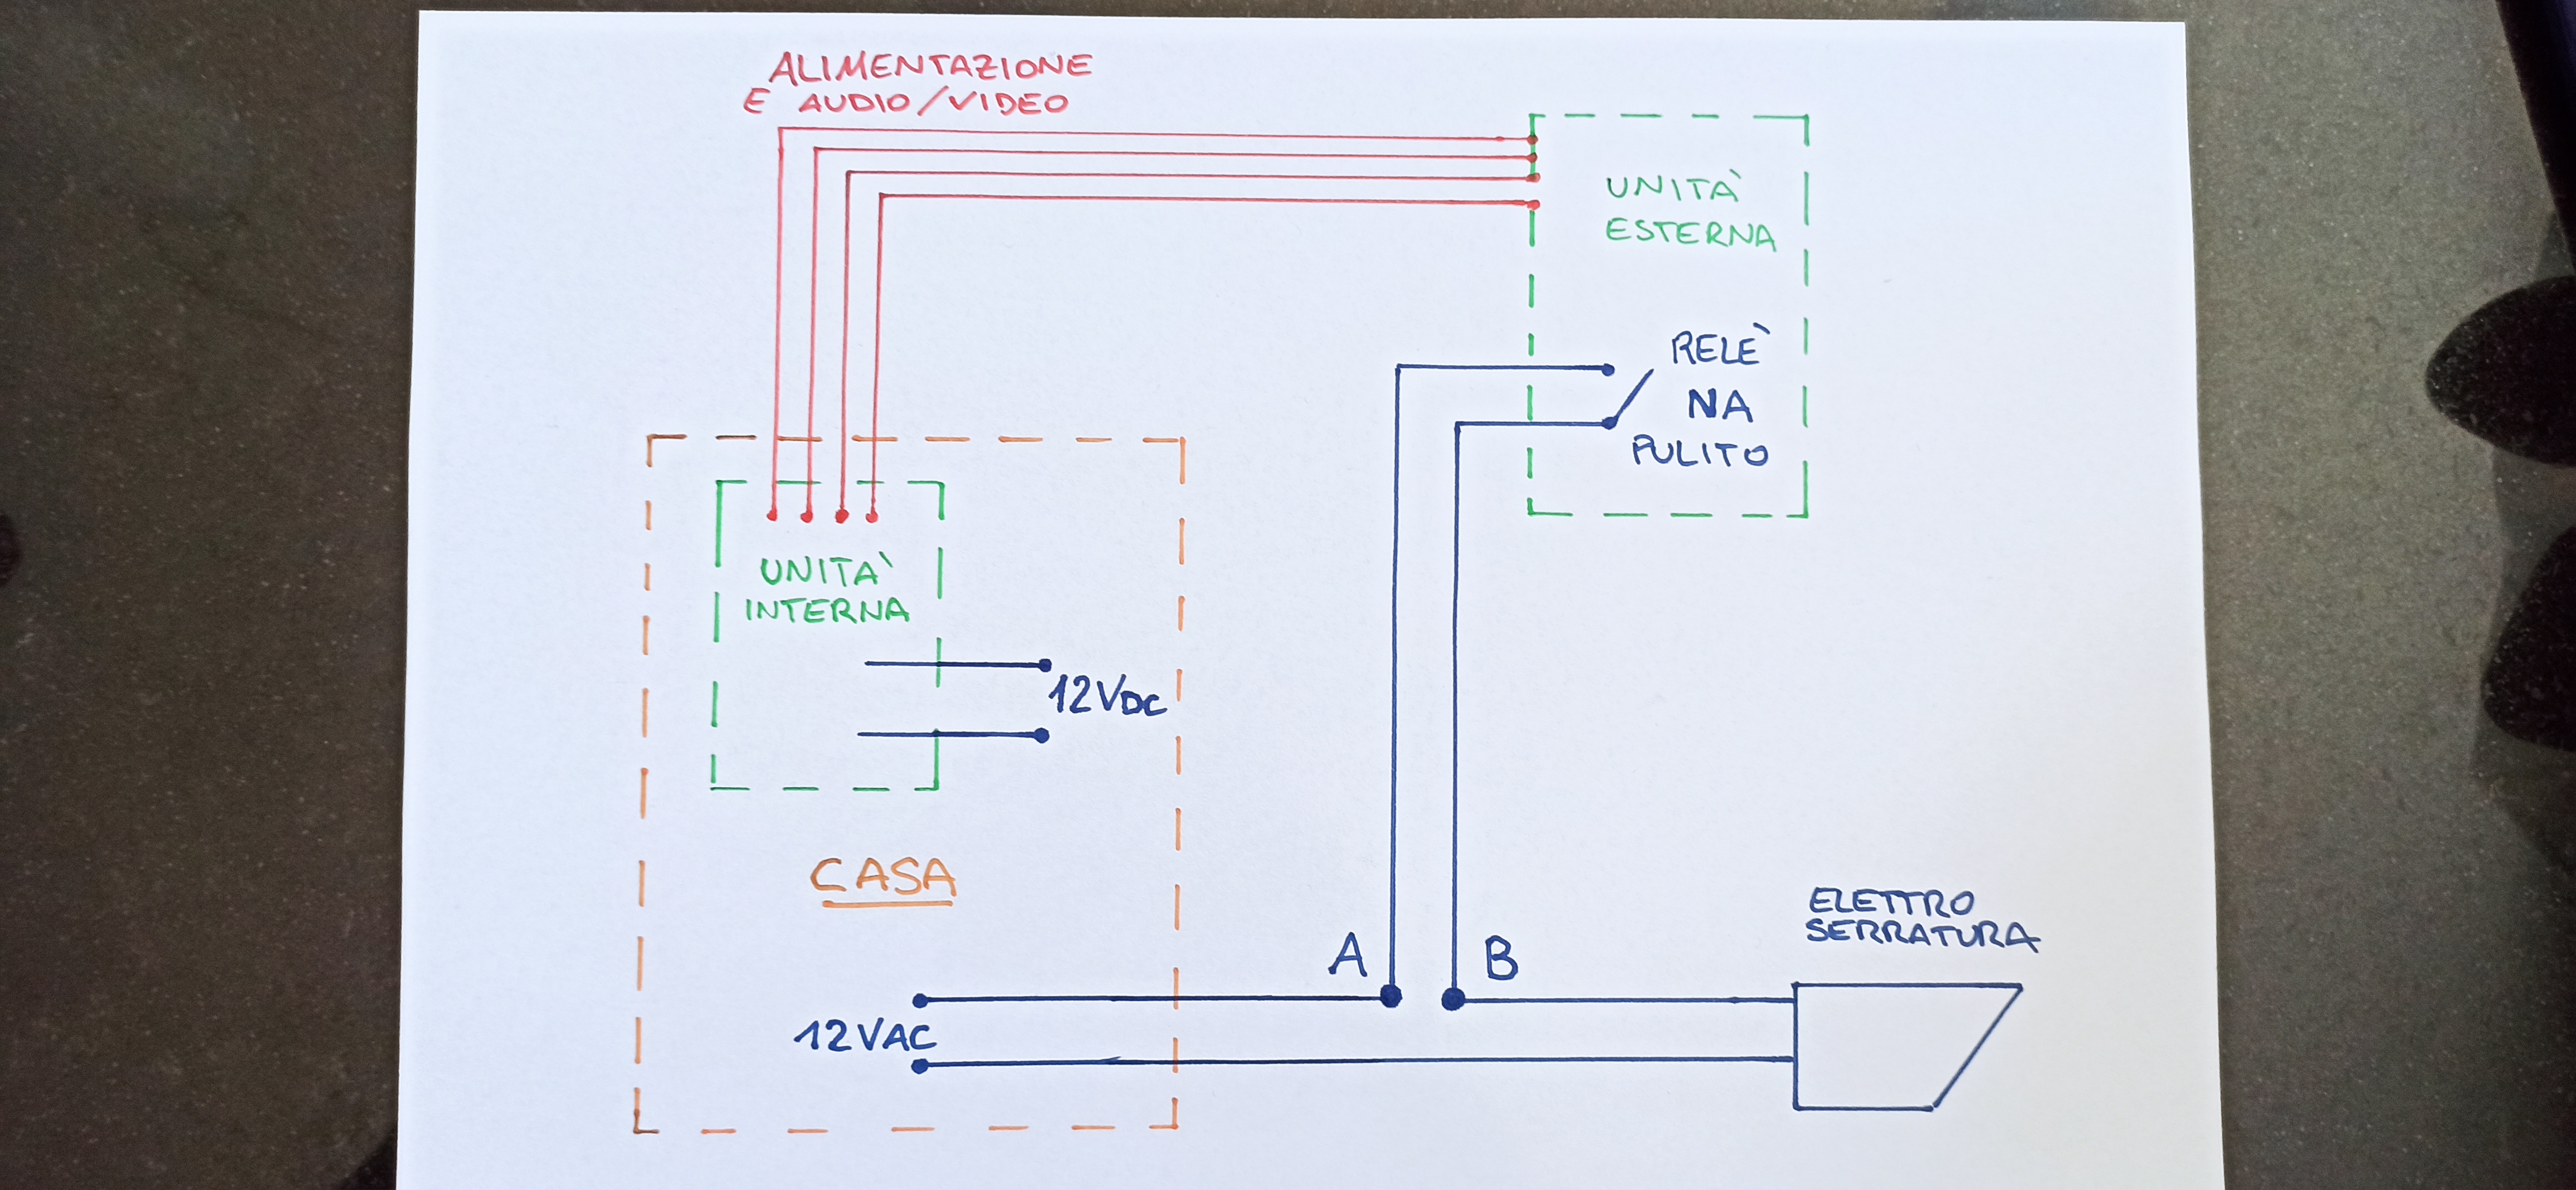 ALIMENTAZIONE
E AUDIO/VIDEO
UNITÀ
ESTERNA
RELÈ
NA
PULITO
UNITÀ
INTERNA
12VDC
CASA
A
B
ELETTRO
SERRATURA
12VAC